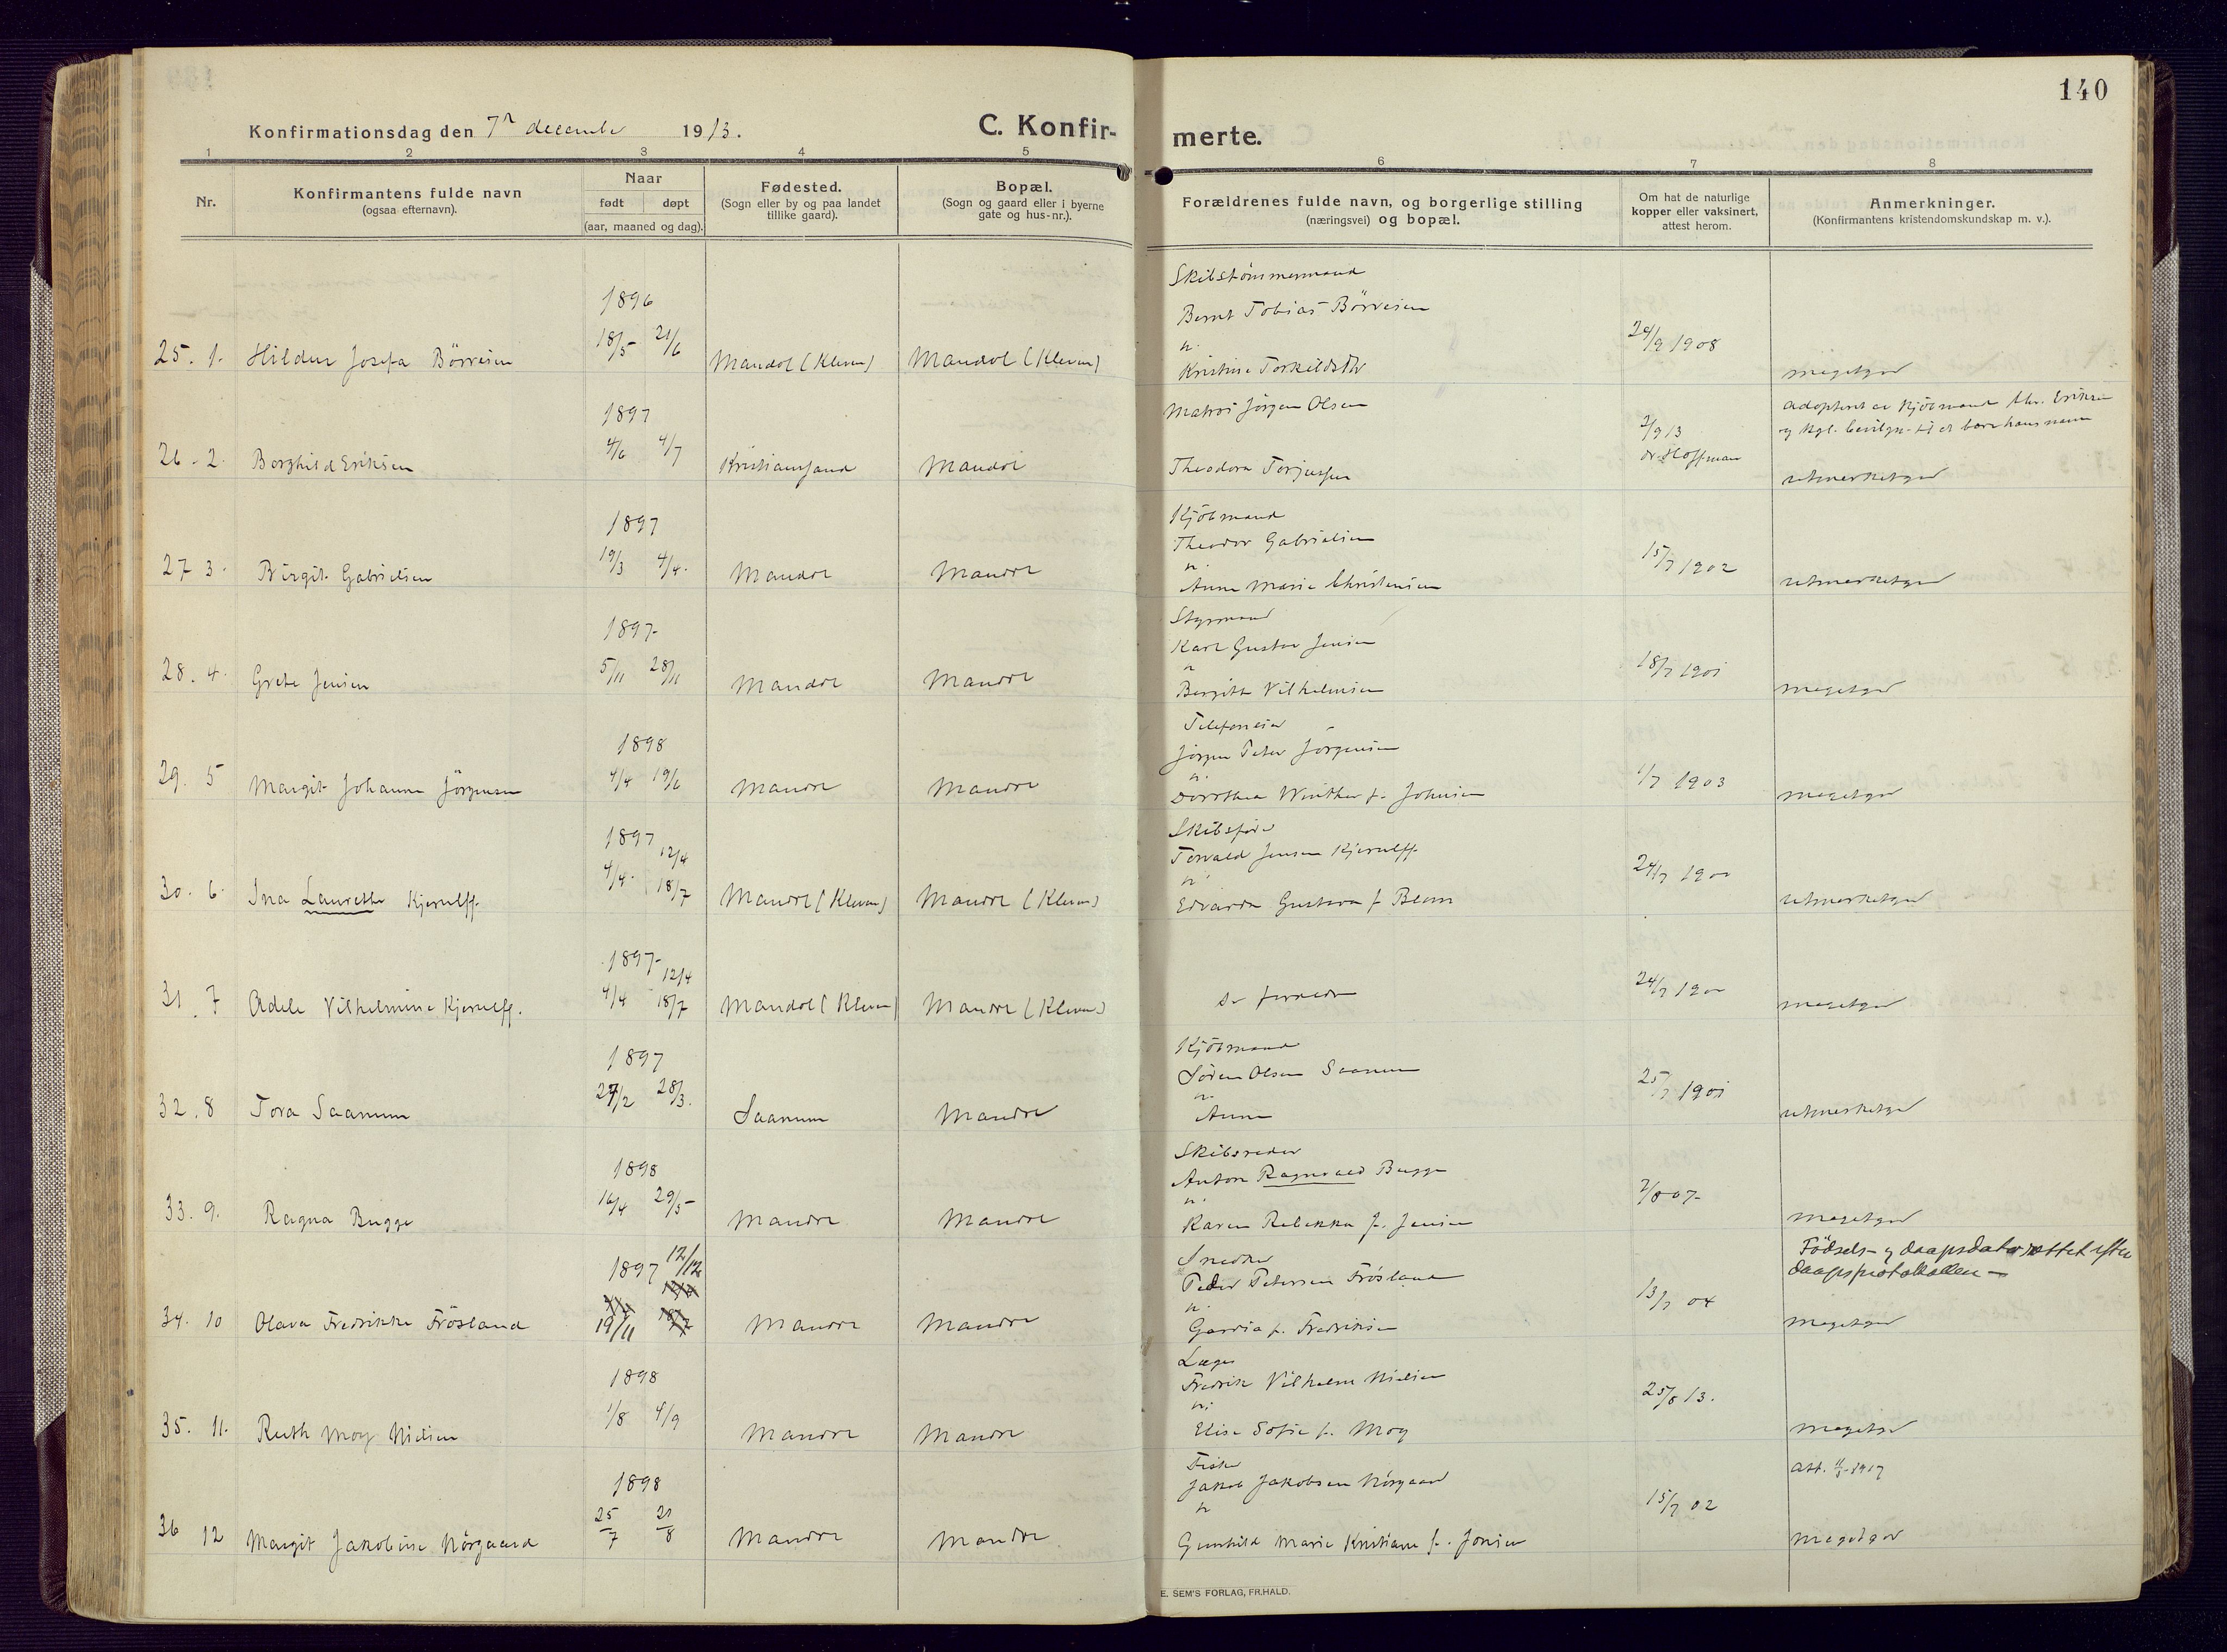 140
Konfirmationsdag den 7de december 1913.
C. Konfir-
merte.
1 2 3 4 5 6 7 8
Nr.
Konfirmantens fulde navn
(ogsaa efternavn).
Naar
født døpt
(aar, maaned og dag).
Fødested.
(Sogn eller by og paa landet
tillike gaard).
Bopæl.
(Sogn og gaard eller i byerne
gate og hus-nr.).
Forældrenes fulde navn, og borgerlige stilling
(næringsvei) og bopæl.
Om hat de naturlige
kopper eller vaksinert,
attest herom.
Anmerkninger.
(Konfirmantens kristendomskundskap m. v.).
Skibstømmermand
1896
Bernt Tobias Børresen
25. 1. Hildur Josefa Børresen 18/5 21/6 Mandal (Kleven) Mandal (Kleven)
Kristine Torkildsdtr
1908
megetgod
1897
Matros Jørgen Olsen
adoptert av Kjøbmand Chr. Eriksen
og kgl. bevilgn. til at bære hans navn
26. 2. Borghild Eriksen 4/6 4/7 Kristianssand Mandal
Theodora Torjussen
2/9 13
dr. Hoffman
utmerketgod
1897
Kjøbmand
Theodor Gabrielsen
27 3. Birgit Gabrielsen 19/3 4/4. Mandal Mandal
Anne Marie Christensen
15/7 1902
utmerketgod
1897
Styrmand
Karl Gustav Jensen
28. 4. Grete Jensen 5/11 28/11 Mandal Mandal
Bergitte Vilhelmsen
18/7 1901
megetgod
1898
Telefoneier
Jørgen Peter Jørgensen
29. 5 Margit Johanne Jørgensen 4/4 19/6 Mandal Mandal
Dorothea Winther f. Johnsen
1/7 1903
megetgod
1897
12/4
Skibsfører
Torvald Jensen Kjerulff
30. 6. Ina Laurethe Kjerulff. 4/4. 18/7 Mandal (Kleven) Mandal (Kleven)
Edvarda Gustava f. Blom
24/7 1900
utmerketgod
1897
12/4
31. 7 Adele Vilhelmine Kjerulff. 4/4 18/7 Mandal (Kleven) Mandal (Kleven)
24/7 1900
megetgod
1897
Kjøbmand
Søren Olsen Saanum
32. 8 Tora Saanum 27/2 28/3. Saanum Mandal
Anne
25/7 1901
utmerketgod
1898
Skibsreder
Anton Ragnvald Bugge
33. 9. Ragna Bugge 16/4 29/5 Mandal Mandal
Karen Rebekka f. Jensen
7/8 07
megetgod
1897 12/12
Snedker
Peder Petersen Frøsland
Fødsels- og daapsdato rettet efter
daapsprotokollen
34. 10 Olava Fredrikke Frøsland 19/11 Mandal Mandal
f. Fredriksen
13/7 04
megetgod
1898
Læge
Fredrik Vilhelm Nielsen
35. 11. Ruth Moy Nielsen 1/8 4/9 Mandal Mandal
Elise Sofie f. Moy
25/8 13.
megetgod
1898
Fisker
Jakob Jakobsen Nørgaard
36 12 Margit Jakobine Nørgaard 25/7 21/8 Mandal Mandal
Gunhild Marie Kristiane f. Jonsen
15/7 02
megetgod
E. SEM'S FORLAG, FR.HALD.